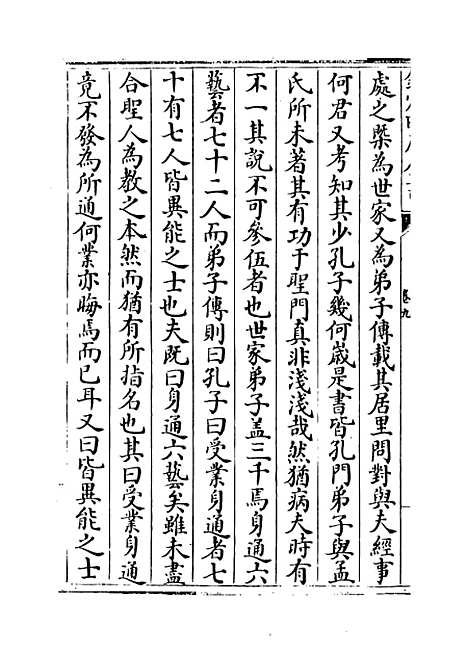 處之槩為世家又為弟子傳載其居里問對與夫經事
何君又考知其少孔子幾何嵗是書皆孔門弟子與孟
氏所未著其有功于聖門真非淺淺哉然猶病夫時有
不一其說不可參伍者也世家弟子盖三千焉身通六
藝者七十二人而弟子傳則曰孔子曰受業身通者七
十有七人皆異能之士也夫既曰身通六藝矣雖未盡
合聖人為教之本然而猶有所指名也其曰受業身通
竟不發為所通何業亦晦焉而已耳又曰皆異能之士
卷九